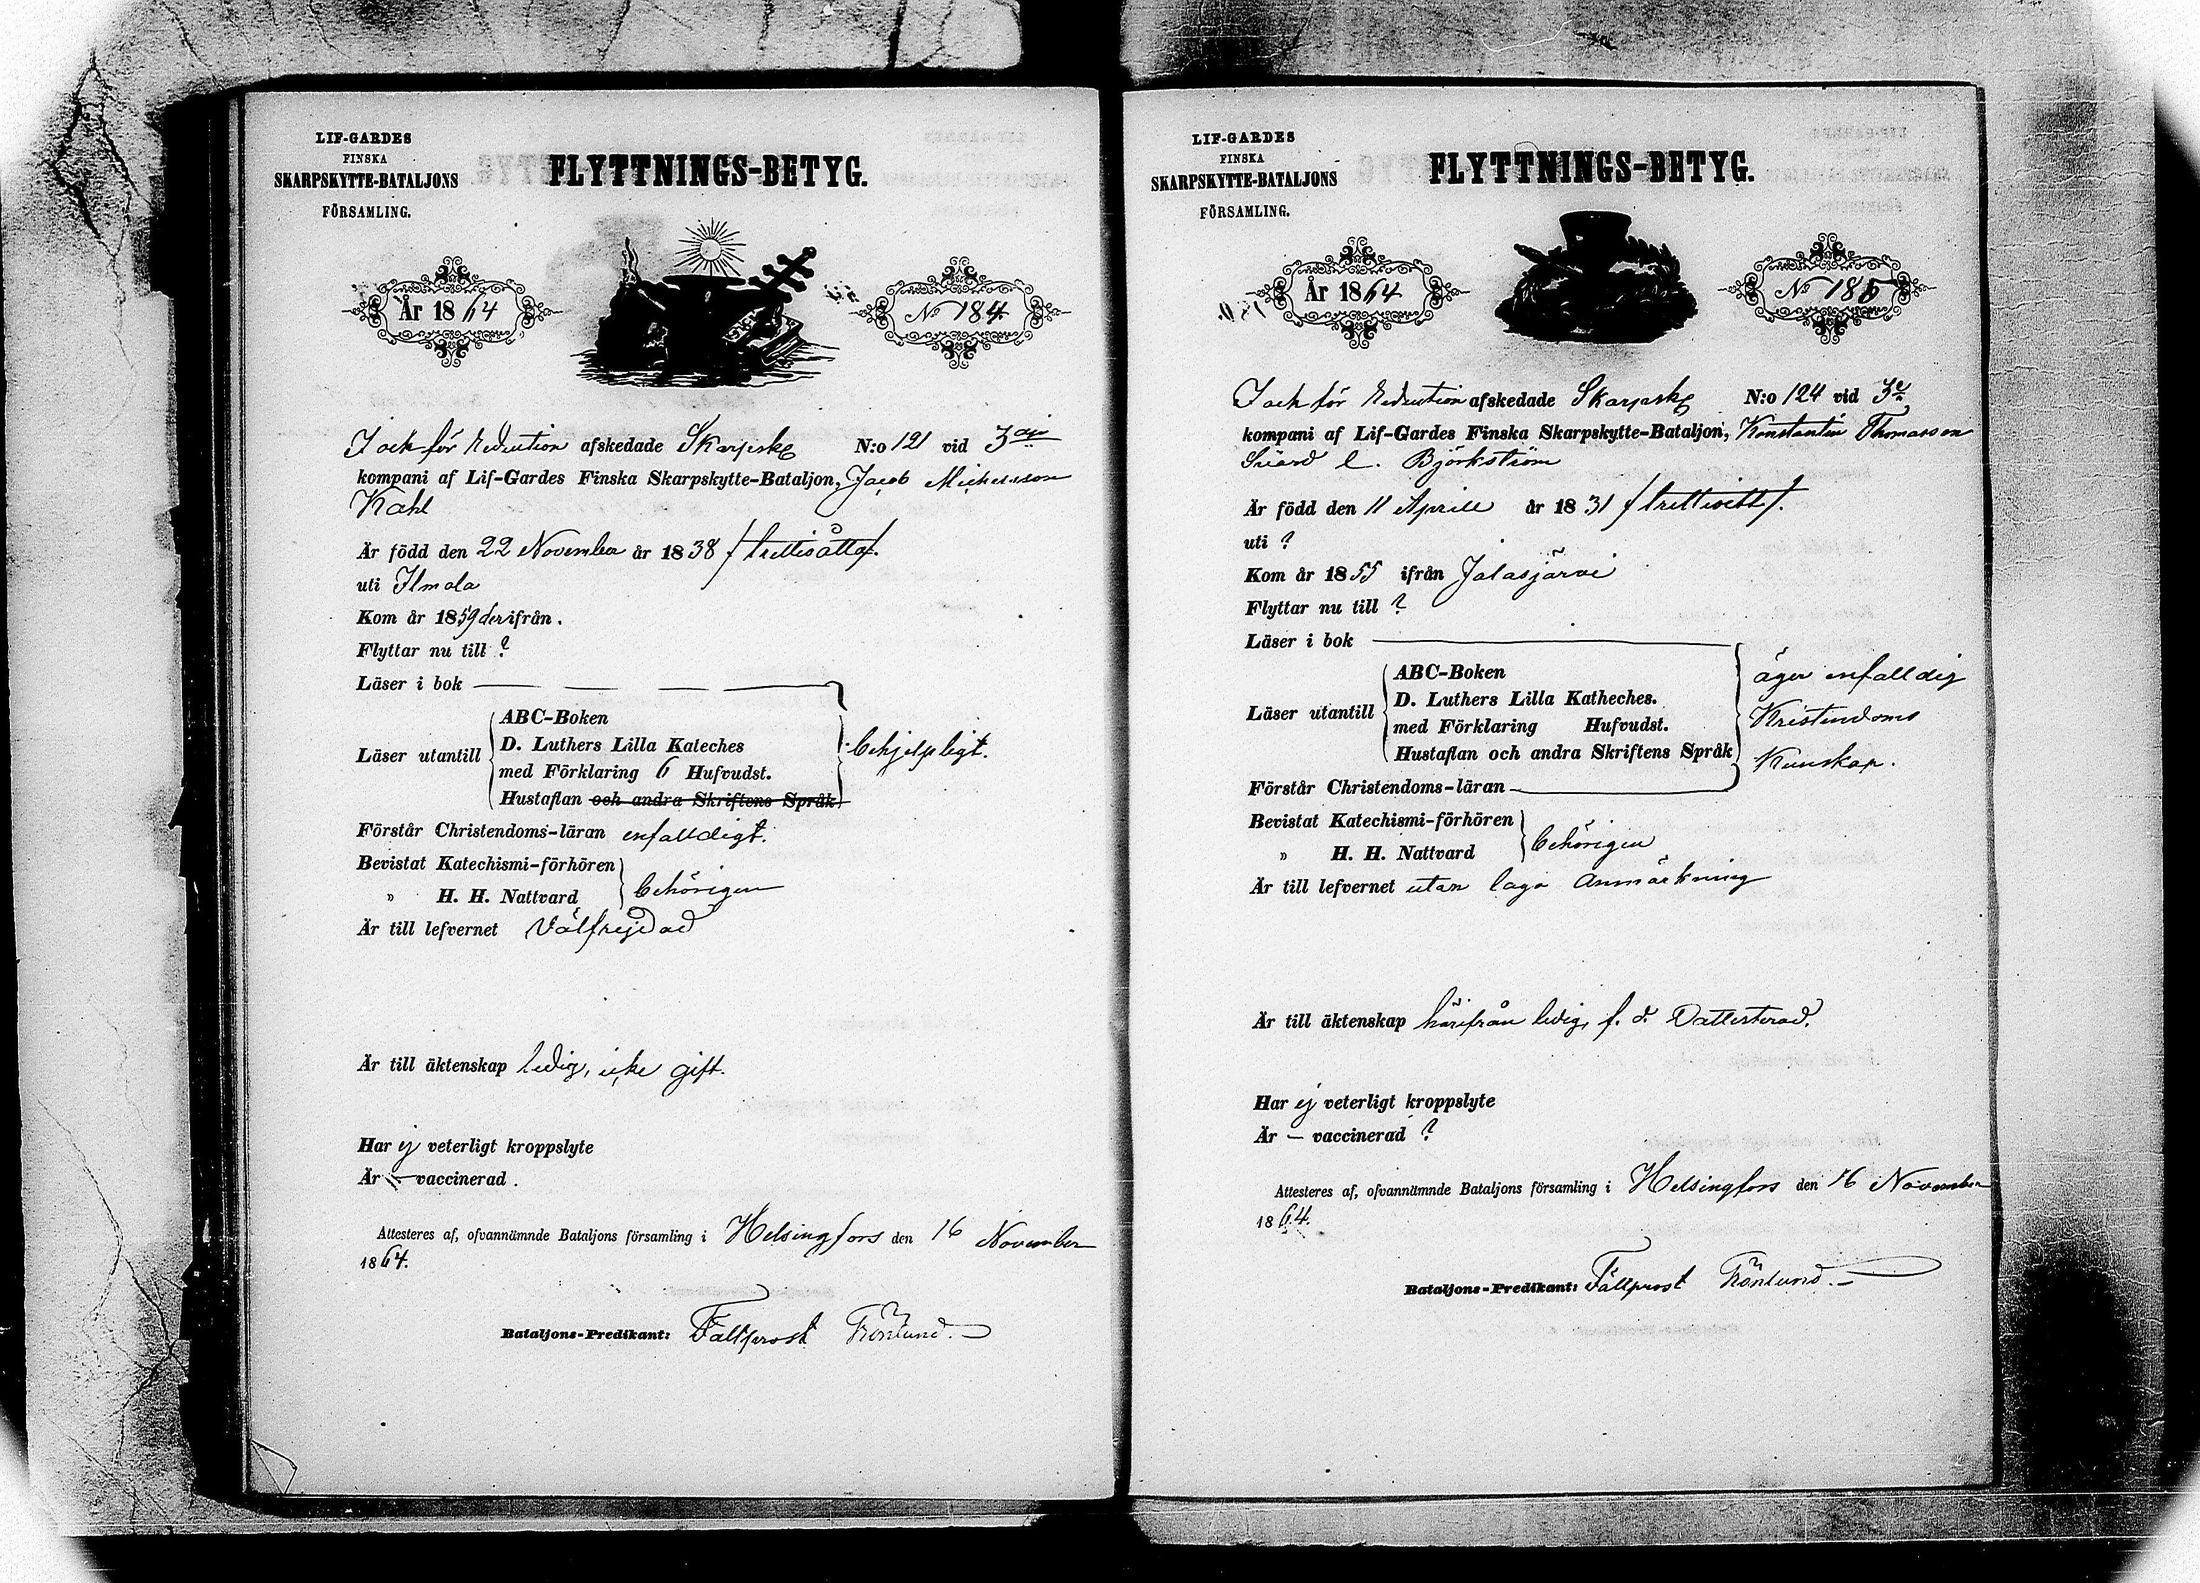 LIF-GARDES
FINSKA
SKARPSKYTTE-BATALJONS
FÖRSAMLING.
FLYTTNINGS-BETYG.
År 1864
No 184.
I och för reduction afskedade Skarpsk N:o 121 vid 3dje
kompani af Lif-Gardes Finska Skarpskytte-Bataljon, Jacob Michelsson
Kahl
Är född den 22 November år 1838 / trettiåtta /.
uti Ilmola
Kom år 1859 derifrån.
Flyttar nu till ?
Läser i bok
Läser utantill
ABC-Boken
D. Luthers Lilla Kateches
med Förklaring 6 Hufvudst.
Hustaflan och andra Skriftens Språk
behjelpligt.
Förstår Christendoms-läran enfaldigt.
Bevistat Katechismi-förhören
" H. H. Nattvard
behörigen
Är till lefvernet Välfrejdad
Är till äktenskap ledig, icke gift.
Har ej veterligt kroppslyte
Är — vaccinerad.
Attesteres af, ofvannämnde Bataljons församling i Helsingfors den 16 November
1864.
Bataljons-Predikant: Fältprost
LIF-GARDES
FINSKA
SKARPSKYTTE-BATALJONS
FÖRSAMLING.
FLYTTNINGS-BETYG.
År 1864
No 185
I och för reduction afskedade Skarpsk N:o 124 vid 3e
kompani af Lif-Gardes Finska Skarpskytte-Bataljon, Konstantin Thomasson
l. Björkström
Är född den 11 Aprill år 1831 / trettiett /.
uti ?
Kom år 1855 ifrån Jalasjärvi
Flyttar nu till ?
Läser i bok
Läser utantill
ABC-Boken
D. Luthers Lilla Katheches.
med Förklaring Hufvudst.
Hustaflan och andra Skriftens Språk
Förstår Christendoms-läran
äger enfalldig
Kristendoms
Kunskap.
Bevistat Katechismi-förhören
" H. H. Nattvard
behörigen
Är till lefvernet utan laga anmärkning
Är till äktenskap härifrån ledig, f. d.
Har ej veterligt kroppslyte
Är — vaccinerad ?
Attesteres af, ofvannämnde Bataljons församling i Helsingfors den 16 November
1864.
Bataljons-Predikant: Fältprost